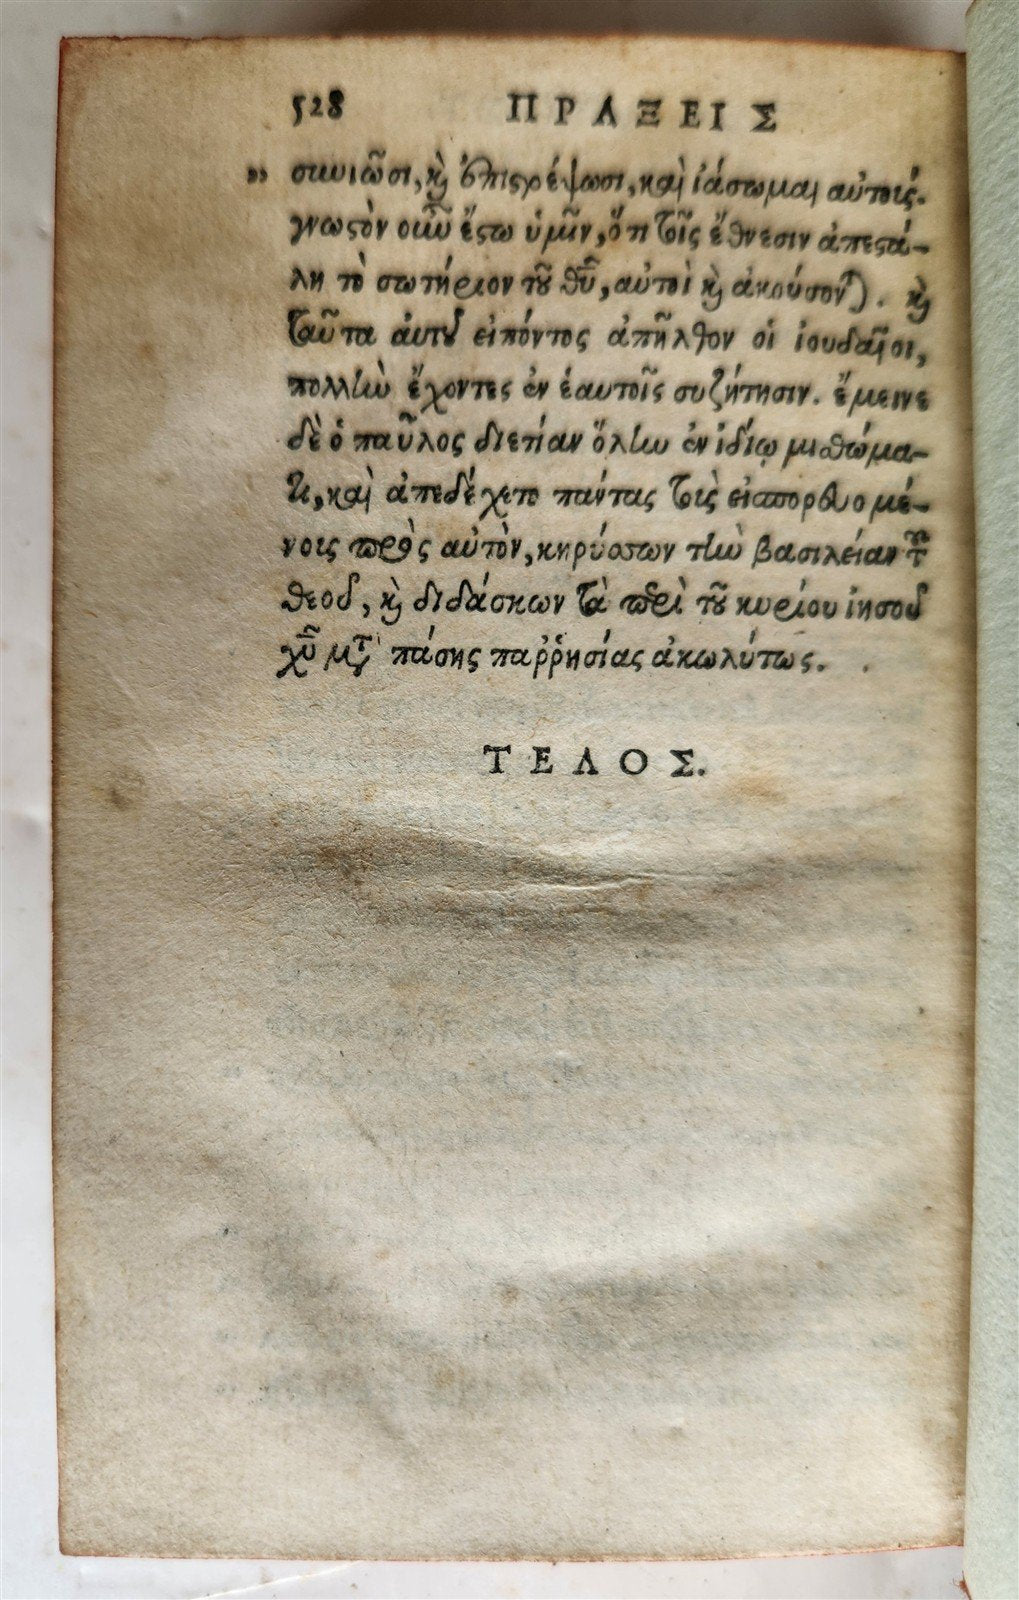 528 ΠΡΑΞΕΙΣ
„ συνιῶσι, κὶ ἐπιςρέψωσι, καὶ ἰάσωμαι αὐτούς.
γνωςὸν οὖν ἔςω ὑμῖν, ὅτι τοῖς ἔθνεσιν ἀπεςά-
λη τὸ σωτήριον τοῦ θῦ, αὐτοὶ κὶ ἀκούσονται. κὶ
ταῦτα αὐτοῦ εἰπόντος ἀπῆλθον οἱ ἰουδαῖοι,
πολλὴν ἔχοντες ἐν ἑαυτοῖς συζήτησιν. ἔμεινε
δὲ ὁ παῦλος διετίαν ὅλην ἐν ἰδίῳ μισθώμα-
τι, καὶ ἀπεδέχετο πάντας τοὺς εἰσπορευομέ-
νοις πρὸς αὐτὸν, κηρύσσων τὴν βασιλείαν τοῦ
θεοῦ, κὶ διδάσκων τὰ περὶ τοῦ κυρίου ἰησοῦ
χῦ μετὰ πάσης παῤῥησίας ἀκωλύτως.
ΤΕΛΟΣ.